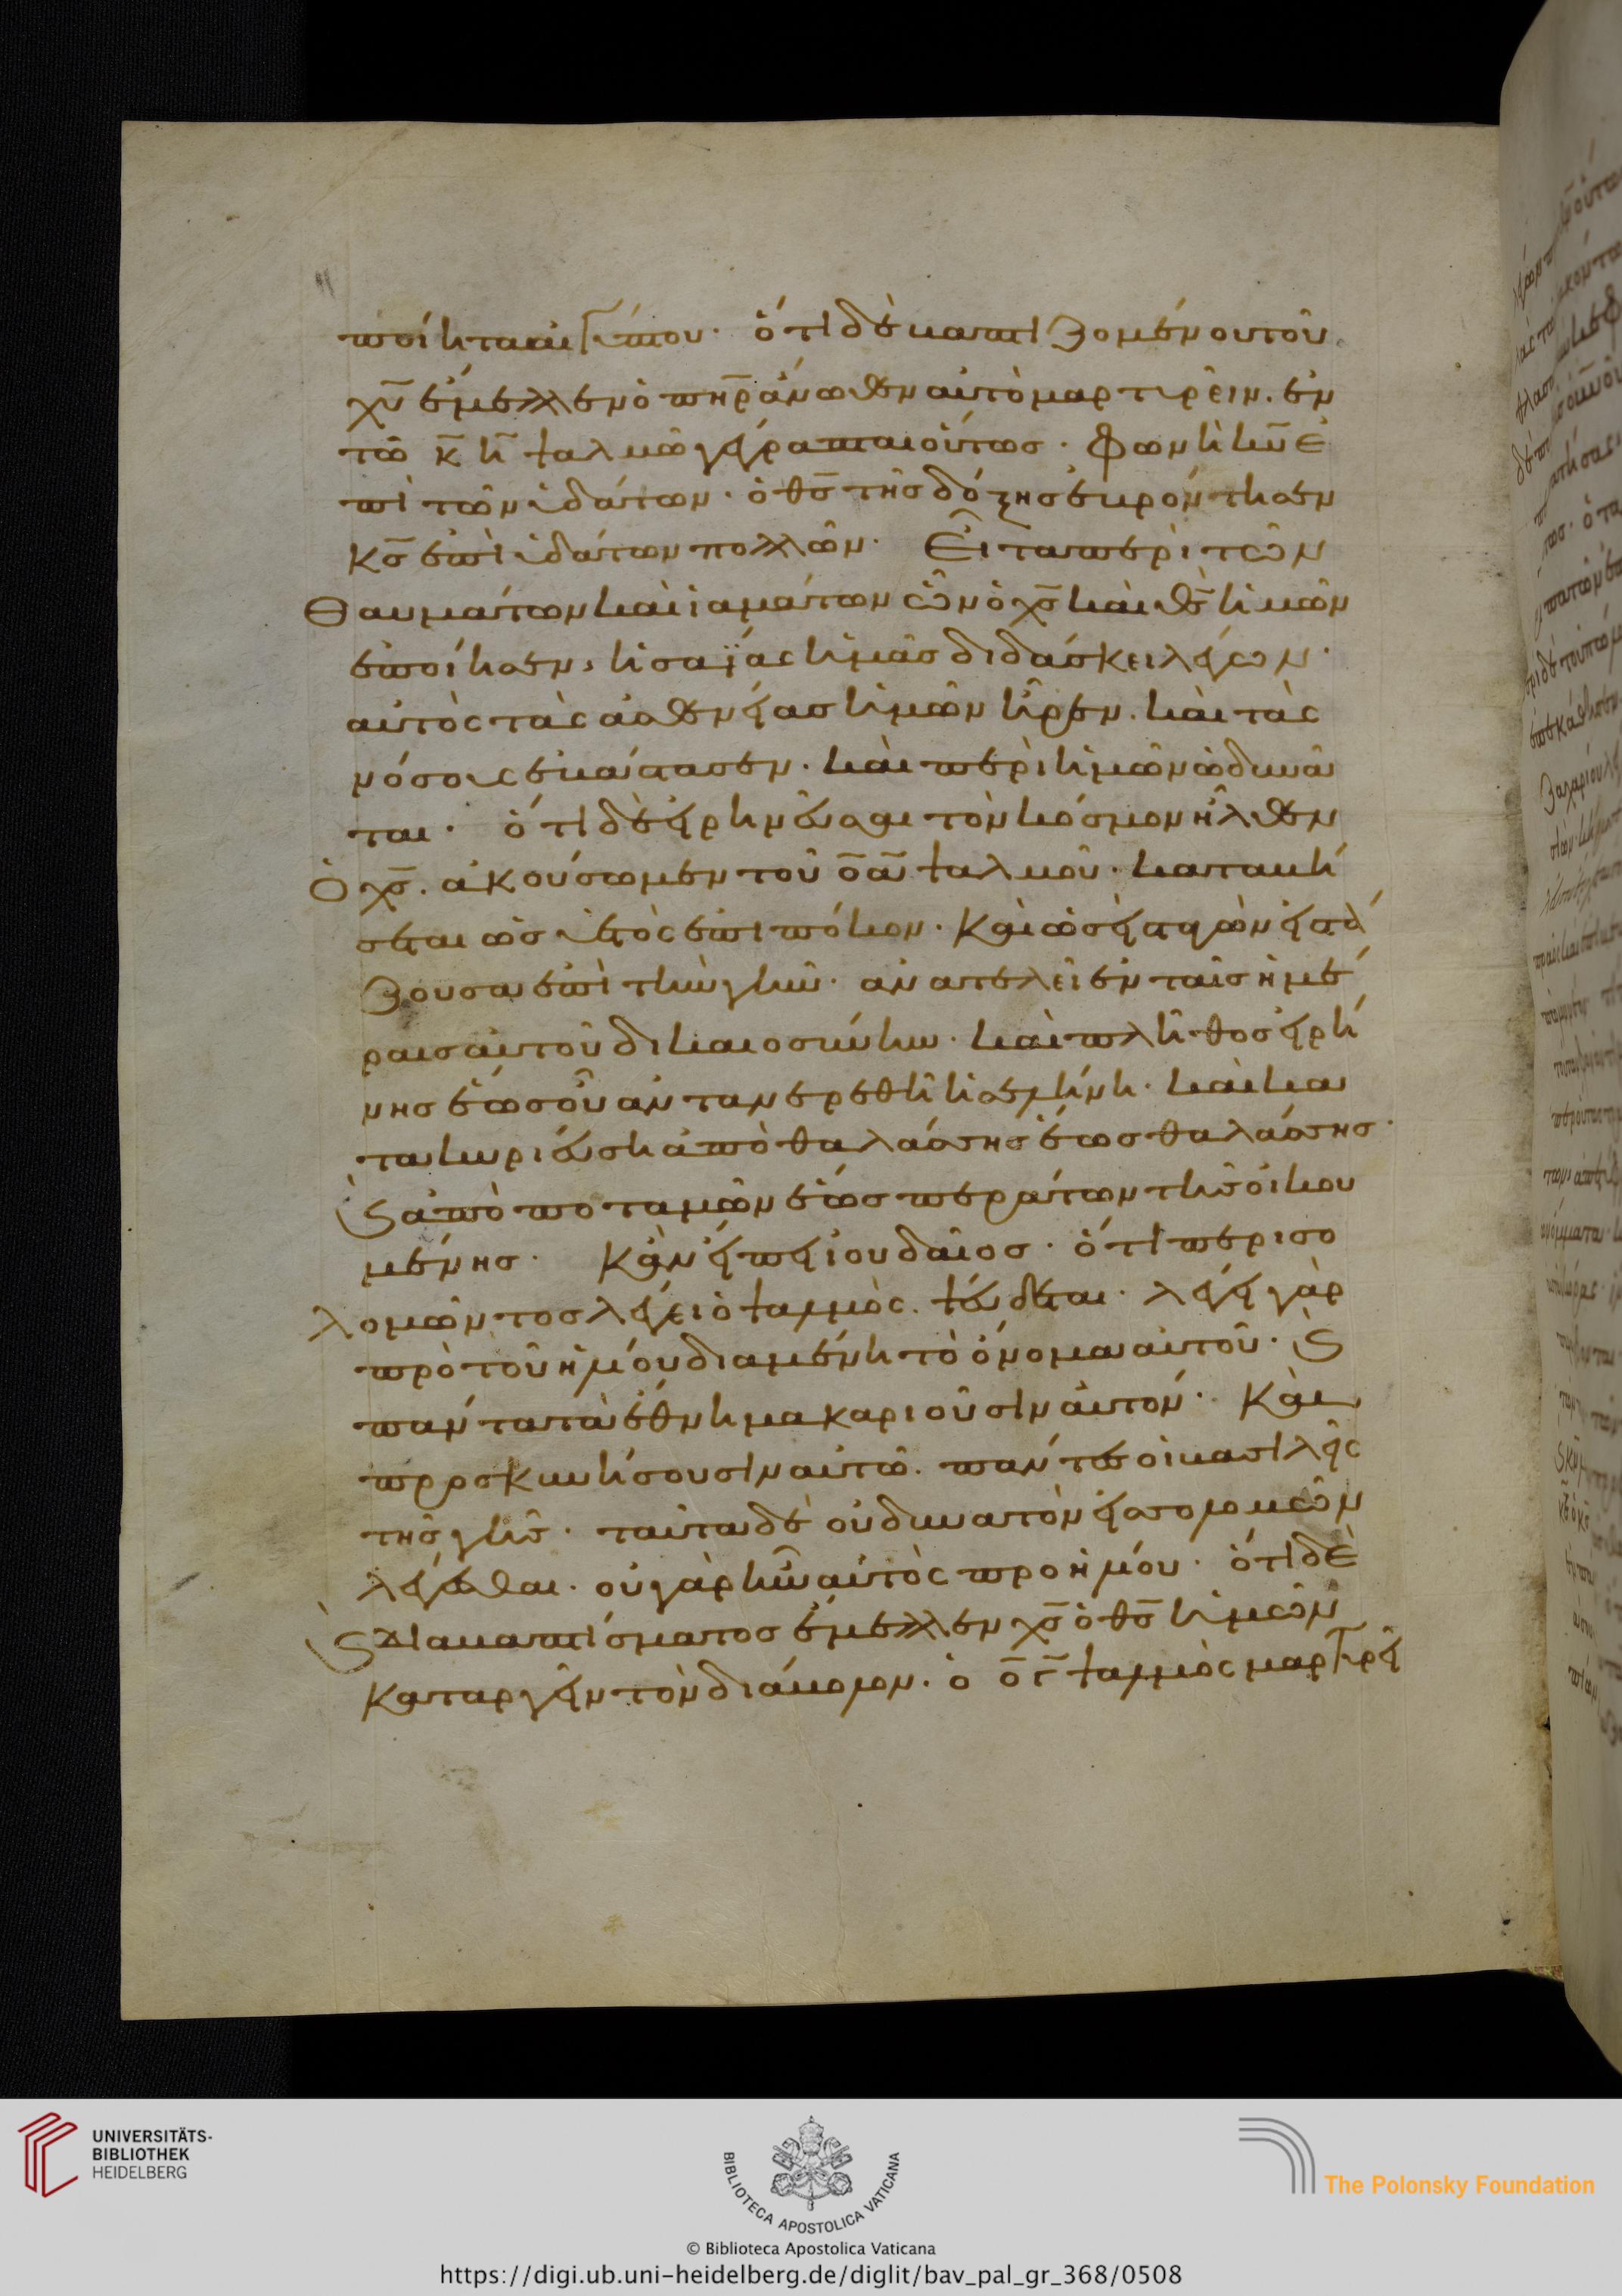 ποίηται αὐτ τύπου· ὅτι δὲ βαπτιζομένου τοῦ
χ̅υ̅ ἔμελλεν ὁ π̅η̅ρ̅ ἄνωθεν αὐτὸ μαρτυρεῖν. ἐν
τῶ κ̅η̅ ψαλμῶ γέγραπται οὕτως· Φωνὴ κ̅υ̅ ἐ
πὶ τῶν ὑδάτων· ὁ θ̅ς̅ τῆς δόξης ἐβρόντησεν
κ̅ς̅ ἐπὶ ὑδάτων πολλῶν· Εἶτα περὶ τῶν
θαυμάτων καὶ ἰαμάτων ὧν ὁ χ̅ς̅ καὶ θ̅ς̅ ἡμῶν
ἐποίησεν, ἡσαΐας ἡμᾶς διδάσκει λέγων·
αὐτὸς τὰς ἀσθενείας ἡμῶν ἦρεν. καὶ τὰς
νόσους ἐβάστασεν. καὶ περὶ ἡμῶν ὀδυνᾶ
ται· ὅτι δὲ εἰρηνεῦσαι τὸν κόσμον ἦλθεν
ὁ χ̅ς̅. ἀκούσωμεν τοῦ ο̅α̅ ψαλμοῦ· καταβή
σεται ὡς ὑετὸς ἐπι πόκον· Καὶ ὡσεὶ σταγὼν ἡ στά
ζουσα ἐπὶ τὴν γῆν· ἀνατελεῖ ἐν ταῖς ἡμέ
ραις αὐτοῦ δικαιοσύνην· καὶ πλῆθος εἰρή
νης ἕως οὗ ἀνταναιρεθῆ ἡ σελήνη· καὶ κα
τακυριεύση ἀπὸ θαλάσσης ἕως θαλάσσης·
ϛ ἀπὸ ποταμῶν ἕως περάτων τῆς οἰκου
μένης· Κἂν εἴπη ἰουδαῖος· ὅτι περὶ σο
λομῶντος λέγει ὁ ψαλμὸς. ψεύδεται· λέγει γὰρ
πρὸ τοῦ ἡλίου διαμένη τὸ ὄνομα αὐτοῦ· ϛ
πάντα τὰ ἔθνη μακαριοῦσιν αὐτόν· Καὶ
προσκυνήσουσιν αὐτῶ. πάντες οἱ βασιλεῖς
τῆς γῆς· ταῦτα δὲ οὐ δυνατὸν εἰς σολομῶν
λέγεσθαι. οὐ γὰρ ἦν αὐτὸς προ ἡλίου· ὅτι δὲ
ϛ διαβαπτίσματος ἔμελλεν χ̅ς̅ ὁ θ̅ς̅ ἡμῶν
καταργεῖν τὸν διάβολον. ὁ ο̅γ̅ ψαλμὸς μαρτυρεῖ
UNIVERSITÄTS-
BIBLIOTHEK
HEIDELBERG
BIBLIOTECA APOSTOLICA VATICANA
The Polonsky Foundation
© Biblioteca Apostolica Vaticana
https://digi.ub.uni-heidelberg.de/diglit/bav_pal_gr_368/0508